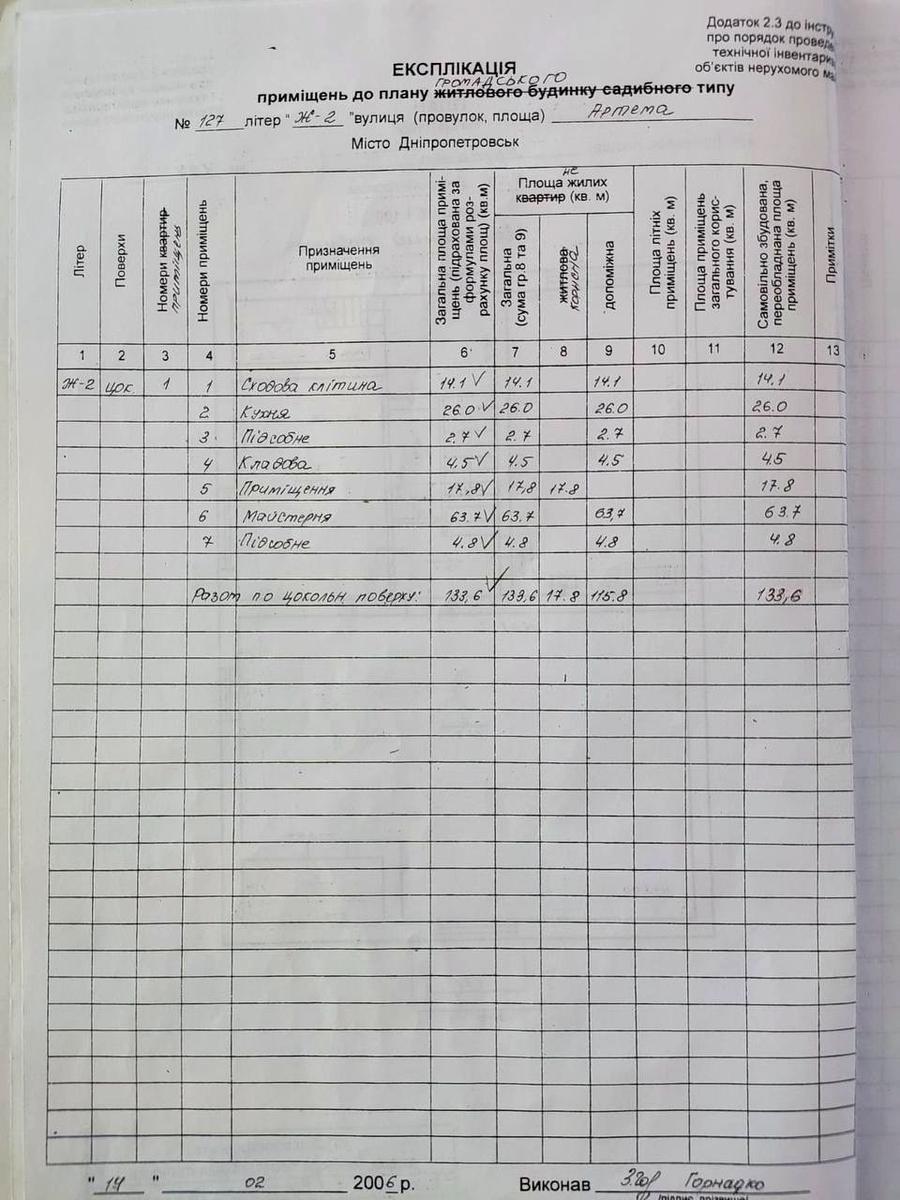 Додаток 2.3 до інстр
про порядок провед
технічної інвентари
об'єктів нерухомого ма
ЕКСПЛІКАЦІЯ
громадського
приміщень до плану житлового будинку садибного типу
№ 127 літер " Ж-2 "вулиця (провулок, площа) Артема
Місто Дніпропетровськ
Літер
Поверхи
Номери квартир приміщень
Номери приміщень
Призначення приміщень
Загальна площа приміщень (підрахована за формулами розрахунку площ) (кв.м)
не
Площа жилих квартир (кв. м)
Загальна (сума гр.8 та 9)
житлова корисна
допоміжна
Площа літніх приміщень (кв. м)
Площа приміщень загального користування (кв. м)
Самовільно збудована, переобладнана площа приміщень (кв. м)
Примітки
1 2 3 4 5 6 7 8 9 10 11 12 13
Ж-2 цок. 1 1 Сходова клітина 14.1 ✓ 14.1 14.1 14.1
2 Кухня 26.0 ✓ 26.0 26.0 26.0
3 Підсобне 2.7 ✓ 2.7 2.7 2.7
4 Кладова 4.5 ✓ 4.5 4.5 4.5
5 Приміщення 17,8 ✓ 17,8 17.8 17.8
6 Майстерня 63.7 ✓ 63.7 63,7 63.7
7 Підсобне 4.8 ✓ 4.8 4.8 4.8
Разом по цокольн поверху: 133,6 ✓ 133,6 17.8 115.8 133,6
" 14 " 02 2006 р. Виконав Горнадко